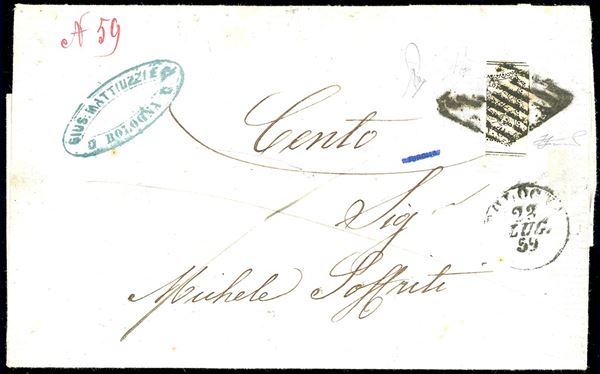 N 59
GIUS. MATTIUZZI
BOLOGNA
Cento
Sig
Michele Soffriti
BOLOGNA
22
LUG.
59